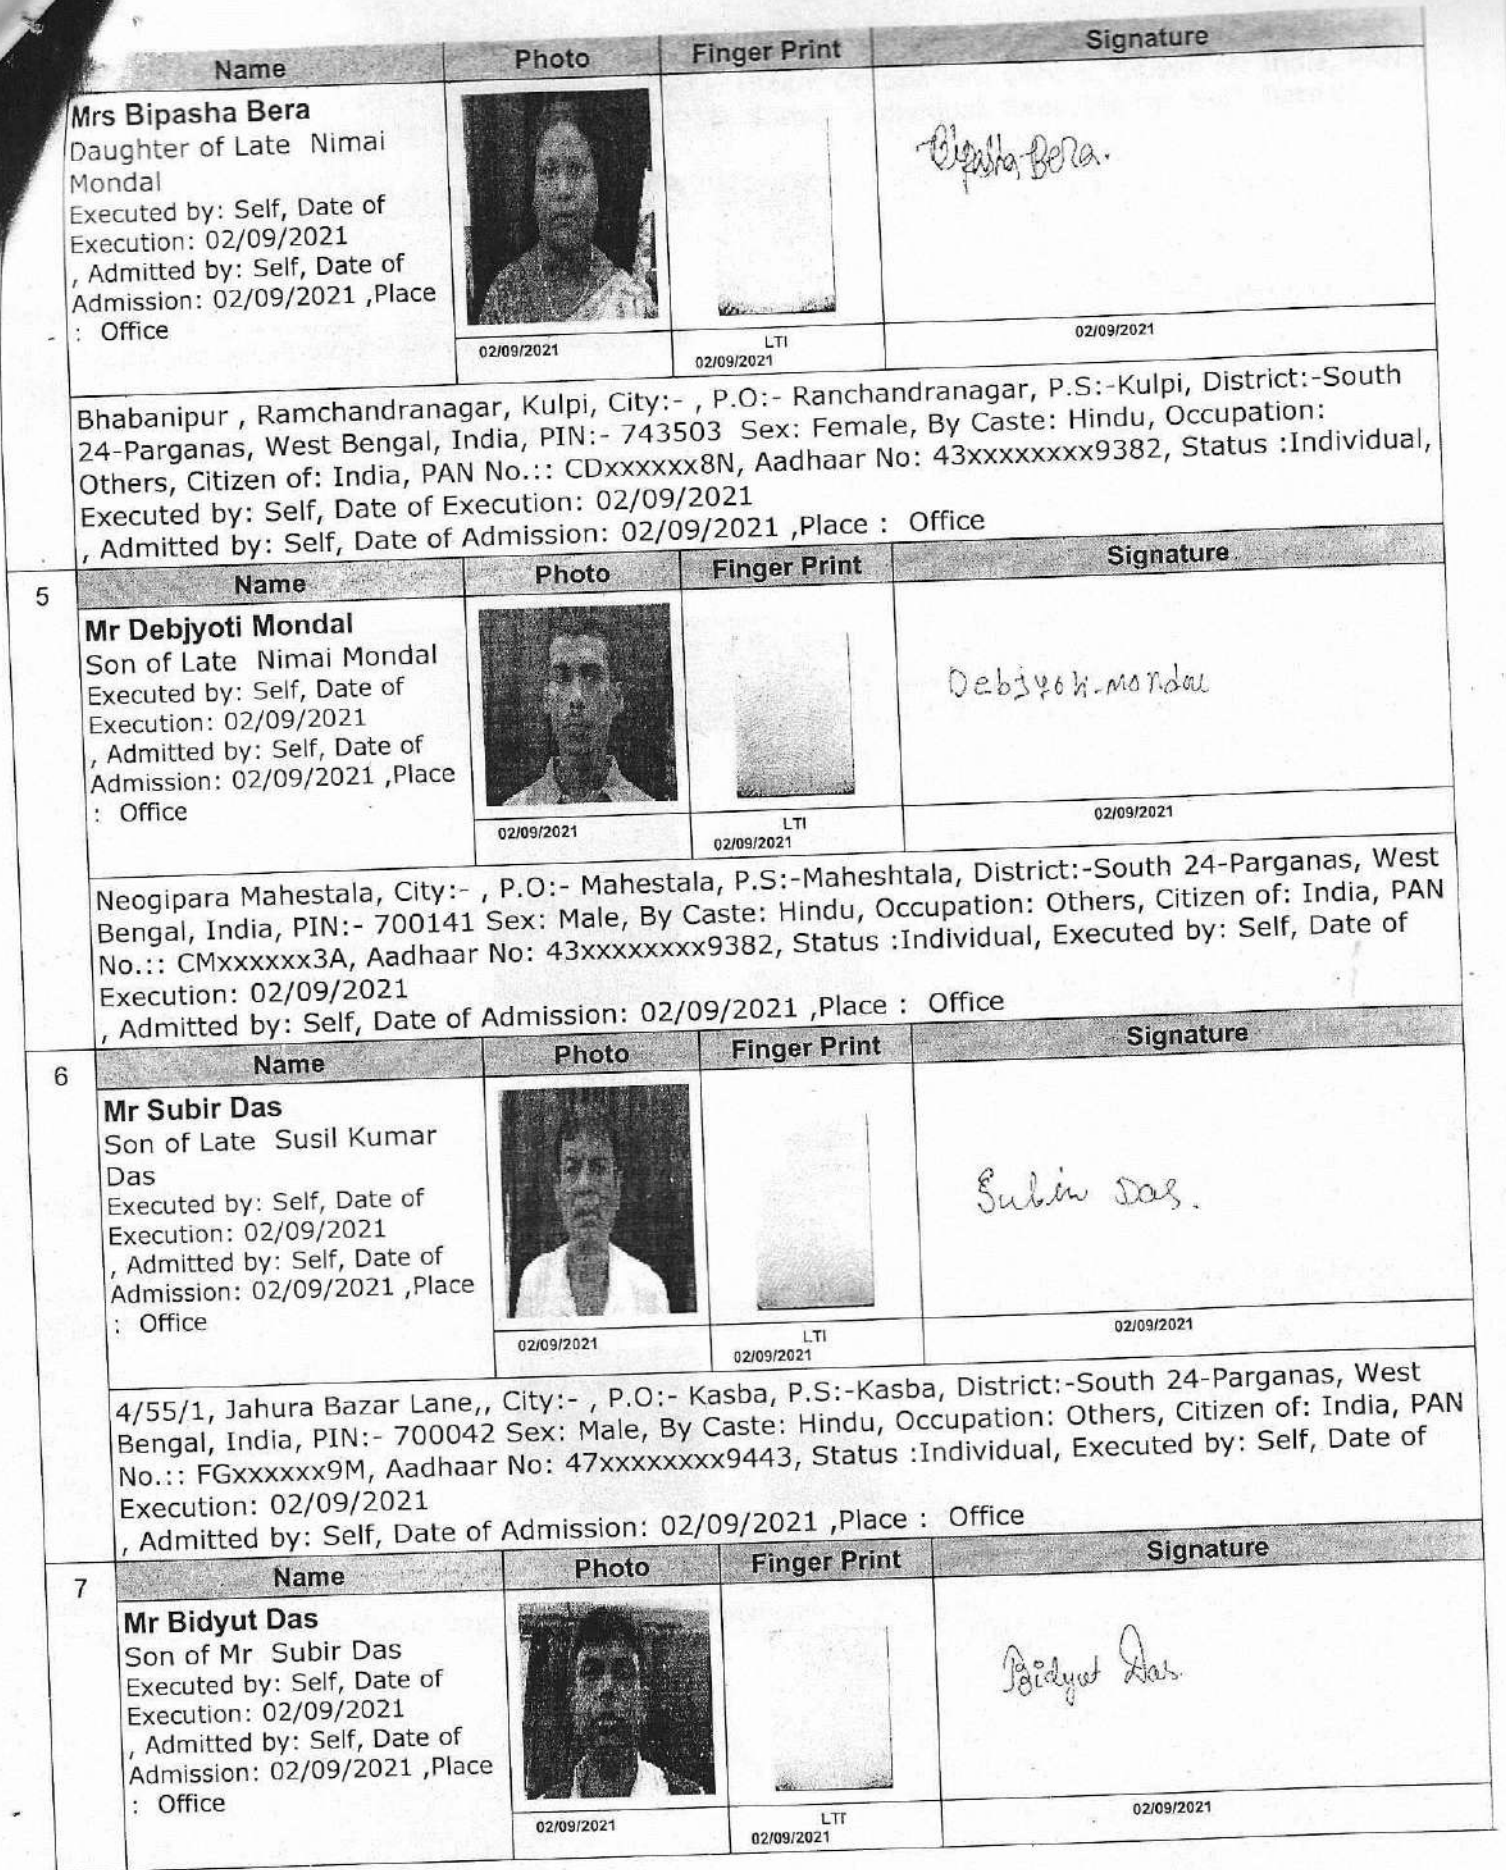 Name Photo Finger Print Signature
Mrs Bipasha Bera
Daughter of Late Nimai
Mondal
Executed by: Self, Date of
Execution: 02/09/2021
, Admitted by: Self, Date of
Admission: 02/09/2021 ,Place
: Office
Bipasha Bera.
02/09/2021
LTI
02/09/2021
02/09/2021
Bhabanipur , Ramchandranagar, Kulpi, City:- , P.O:- Ranchandranagar, P.S:-Kulpi, District:-South
24-Parganas, West Bengal, India, PIN:- 743503 Sex: Female, By Caste: Hindu, Occupation:
Others, Citizen of: India, PAN No.:: CDxxxxxx8N, Aadhaar No: 43xxxxxxxx9382, Status :Individual,
Executed by: Self, Date of Execution: 02/09/2021
, Admitted by: Self, Date of Admission: 02/09/2021 ,Place : Office
5 Name Photo Finger Print Signature
Mr Debjyoti Mondal
Son of Late Nimai Mondal
Executed by: Self, Date of
Execution: 02/09/2021
, Admitted by: Self, Date of
Admission: 02/09/2021 ,Place
: Office
Debjyoti Mondal
02/09/2021
LTI
02/09/2021
02/09/2021
Neogipara Mahestala, City:- , P.O:- Mahestala, P.S:-Maheshtala, District:-South 24-Parganas, West
Bengal, India, PIN:- 700141 Sex: Male, By Caste: Hindu, Occupation: Others, Citizen of: India, PAN
No.:: CMxxxxxx3A, Aadhaar No: 43xxxxxxxx9382, Status :Individual, Executed by: Self, Date of
Execution: 02/09/2021
, Admitted by: Self, Date of Admission: 02/09/2021 ,Place : Office
6 Name Photo Finger Print Signature
Mr Subir Das
Son of Late Susil Kumar
Das
Executed by: Self, Date of
Execution: 02/09/2021
, Admitted by: Self, Date of
Admission: 02/09/2021 ,Place
: Office
Subir Das.
02/09/2021
LTI
02/09/2021
02/09/2021
4/55/1, Jahura Bazar Lane,, City:- , P.O:- Kasba, P.S:-Kasba, District:-South 24-Parganas, West
Bengal, India, PIN:- 700042 Sex: Male, By Caste: Hindu, Occupation: Others, Citizen of: India, PAN
No.:: FGxxxxxx9M, Aadhaar No: 47xxxxxxxx9443, Status :Individual, Executed by: Self, Date of
Execution: 02/09/2021
, Admitted by: Self, Date of Admission: 02/09/2021 ,Place : Office
7 Name Photo Finger Print Signature
Mr Bidyut Das
Son of Mr Subir Das
Executed by: Self, Date of
Execution: 02/09/2021
, Admitted by: Self, Date of
Admission: 02/09/2021 ,Place
: Office
Bidyut Das.
02/09/2021
LTI
02/09/2021
02/09/2021